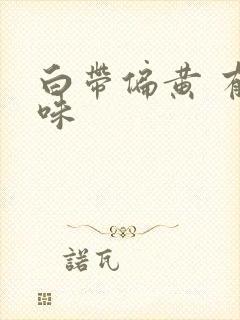 白帶偏黃
味
諾瓦